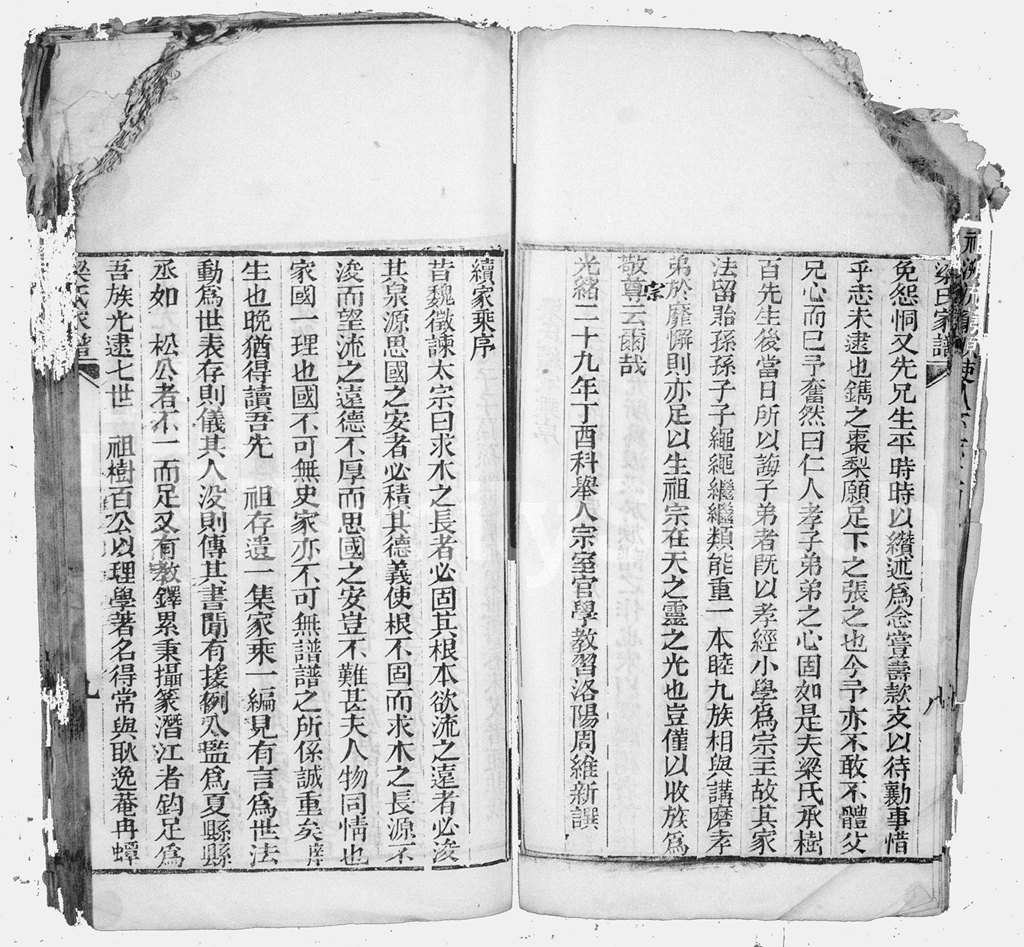 梁氏家譜
免怨恫又先兄生平時時以纘述爲念嘗壽款支以待勷事惜
乎志未逮也鐫之棗梨願足下之張之也今予亦不敢不體父
兄心而已予奮然曰仁人孝子弟弟之心固如是夫梁氏承樹
百先生後當日所以誨子弟者既以孝經小學爲宗主故其家
法留貽孫孫子子繩繩繼繼類能重一本睦九族相與講磨孝
弟於靡懈則亦足以生祖宗在天之靈之光也豈僅以收族爲
敬尊宗云爾哉
光緒二十九年丁酉科舉人宗室官學教習洛陽周維新譔
續家乘序
昔魏徵諫太宗曰求木之長者必固其根本欲流之遠者必浚
其泉源思國之安者必積其德義使根不固而求木之長源不
浚而望流之遠德不厚而思國之安豈不難甚夫人物同情也
家國一理也國不可無史家亦不可無譜譜之所係誠重矣庠
生也晚猶得讀吾先 祖存遺一集家乘一編見有言爲世法
動爲世表存則儀其人没則傳其書聞有援例入監爲夏縣縣
丞如 松公者不一而足又有教鐸累秉攝篆潛江者鈞足爲
吾族光逮七世 祖樹百公以理學著名得常與耿逸菴冉蟫
梁氏家譜
九